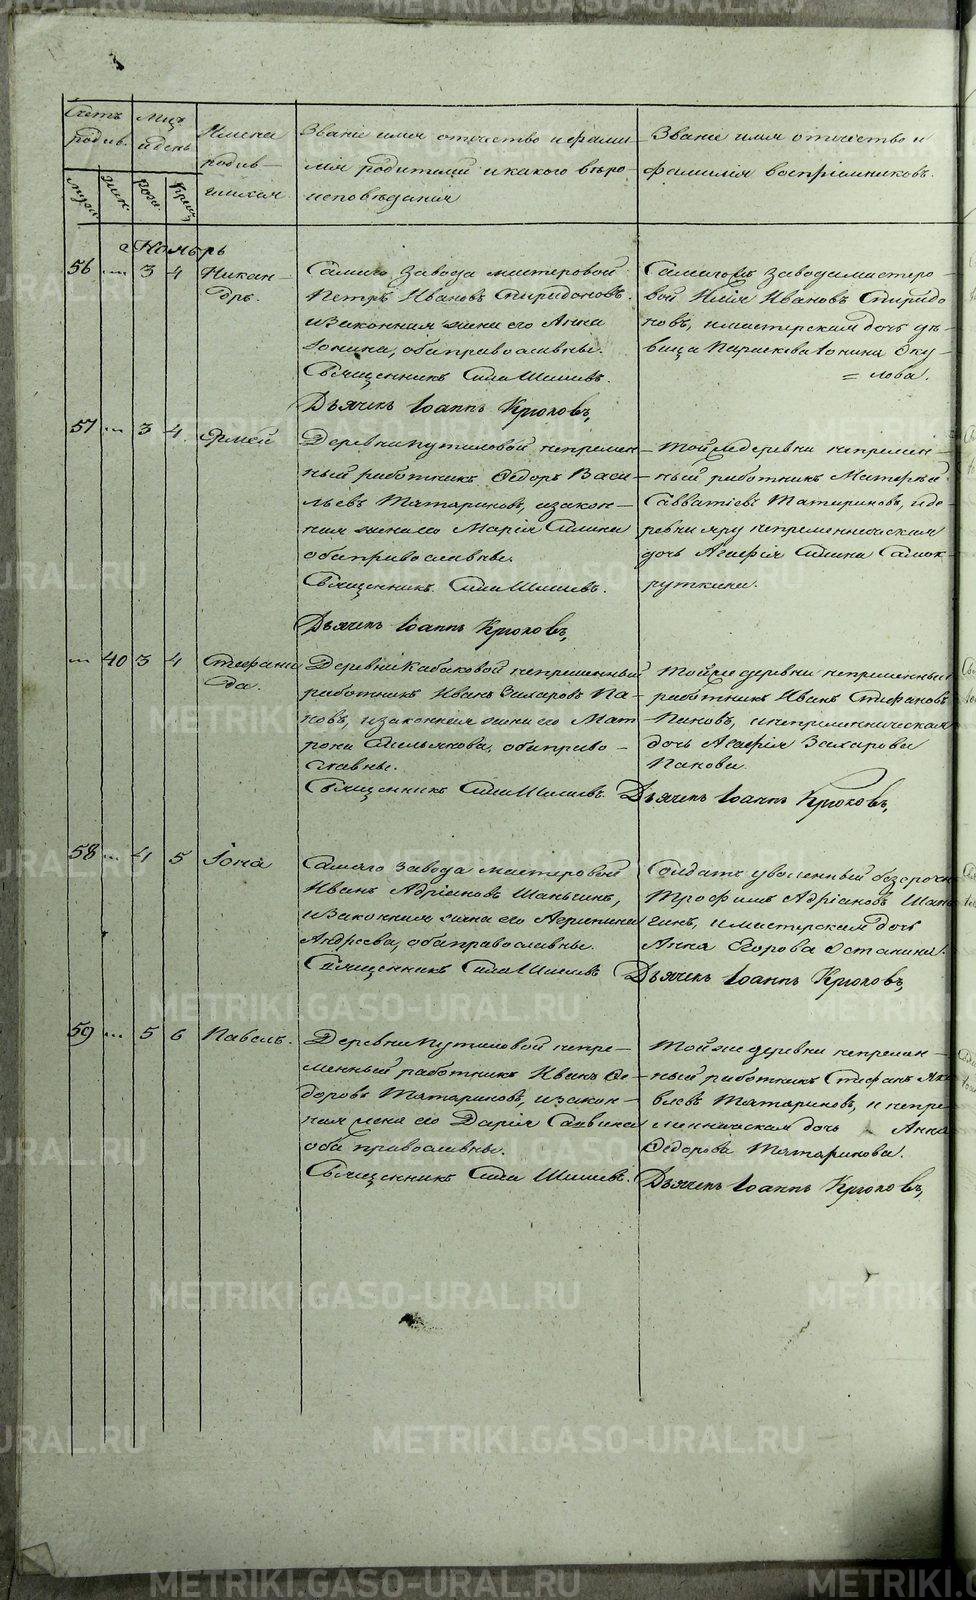 Счетъ родив.
Мцъ и день
Имена родив-
шихся
Званіе имя отечество и фами-
лія родителей и какого вѣро-
исповѣданія
Званіе имя отечество и
фамилія воспріемниковъ.
муж. жен. рож. крещ.
Ноябрь
56 — 3 4 Никан-
дръ.
Самаго завода мастеровой
Петръ Ивановъ Спиридоновъ.
и законная жена его Анна
Іонина, оба православные.
Священникъ Сила Шишевъ.
Дьячекъ Іоаннъ Крюковъ,
Самагожъ завода мастеро-
вой Илія Ивановъ Спиридо
новъ, и мастерская дочь дѣ-
вица Параскева Іонина Оку-
= лова.
57 — 3 4. Ермей
Деревни Путиловой непремен-
ный работникъ Ѳедоръ Васи-
льевъ Татариновъ, и закон-
ная жена его Марія
оба православные.
Священникъ Сила Шишевъ.
Дьячекъ Іоаннъ Крюковъ,
Той же деревни непремен-
ный работникъ
Савватіевъ Татариновъ, и де-
ревни Яру непременническая
дочь Агафія Самок-
руткина.
— 40 3 4 Стефани
да.
Деревни Кабаковой непременный
работникъ Иванъ Захаровъ Па-
новъ, и законная жена его Мат-
рона Емельянова, оба право-
славные.
Священникъ Сила Шишевъ.
Дьячекъ Іоаннъ Крюковъ,
Той же деревни непременный
работникъ Иванъ Стефановъ
Пановъ, и непременническая
дочь Агафія Захарова
Панова.
58 — 4 5 Іона
Самаго завода мастеровой
Иванъ Адріановъ Шаньгинъ,
и законная жена его Агрипина
Андреева, оба православные.
Священникъ Сила Шишевъ
Дьячекъ Іоаннъ Крюковъ,
Солдатъ уволенный безсрочно
Трофимъ Адріановъ Шань
гинъ, и мастерская дочь
Анна Егорова Останина.
59 — 5 6 Павелъ.
Деревни Путиловой непре-
менный работникъ Иванъ Ѳе-
доровъ Татариновъ, и закон-
ная жена его Дарія Саввина
оба православные.
Священникъ Сила Шишевъ.
Дьячекъ Іоаннъ Крюковъ,
Той же деревни непремен-
ный работникъ Стефанъ Яко
влевъ Татариновъ, и непре
менническая дочь Анна
Ѳедорова Татаринова.
METRIKI.GASO-URAL.RU